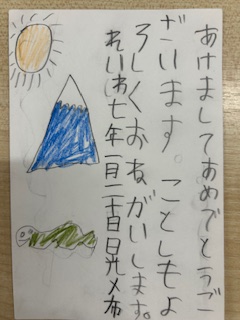 あけましておめでとうご
ざいます。ことしもよ
ろしくおねがいします。
れいわ七年一月二十日日光